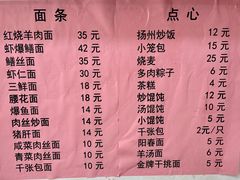 面条
红烧羊肉面 35 元
虾爆鳝面 42 元
鳝丝面 35 元
虾仁面 30 元
三鲜面 18 元
腰花面 18 元
爆鱼面 14 元
肉丝炒面 14 元
猪肝面 14 元
咸菜肉丝面 10 元
青菜肉丝面 10 元
千张包面 10 元
点心
扬州炒饭 12 元
小笼包 15 元
烧麦 25 元
多肉粽子 6 元
茶糕 4 元
炒馄饨 12 元
汤馄饨 10 元
小馄饨 5 元
千张包 2元/只
阳春面 5 元
羊汤面 6 元
金牌干挑面 5 元